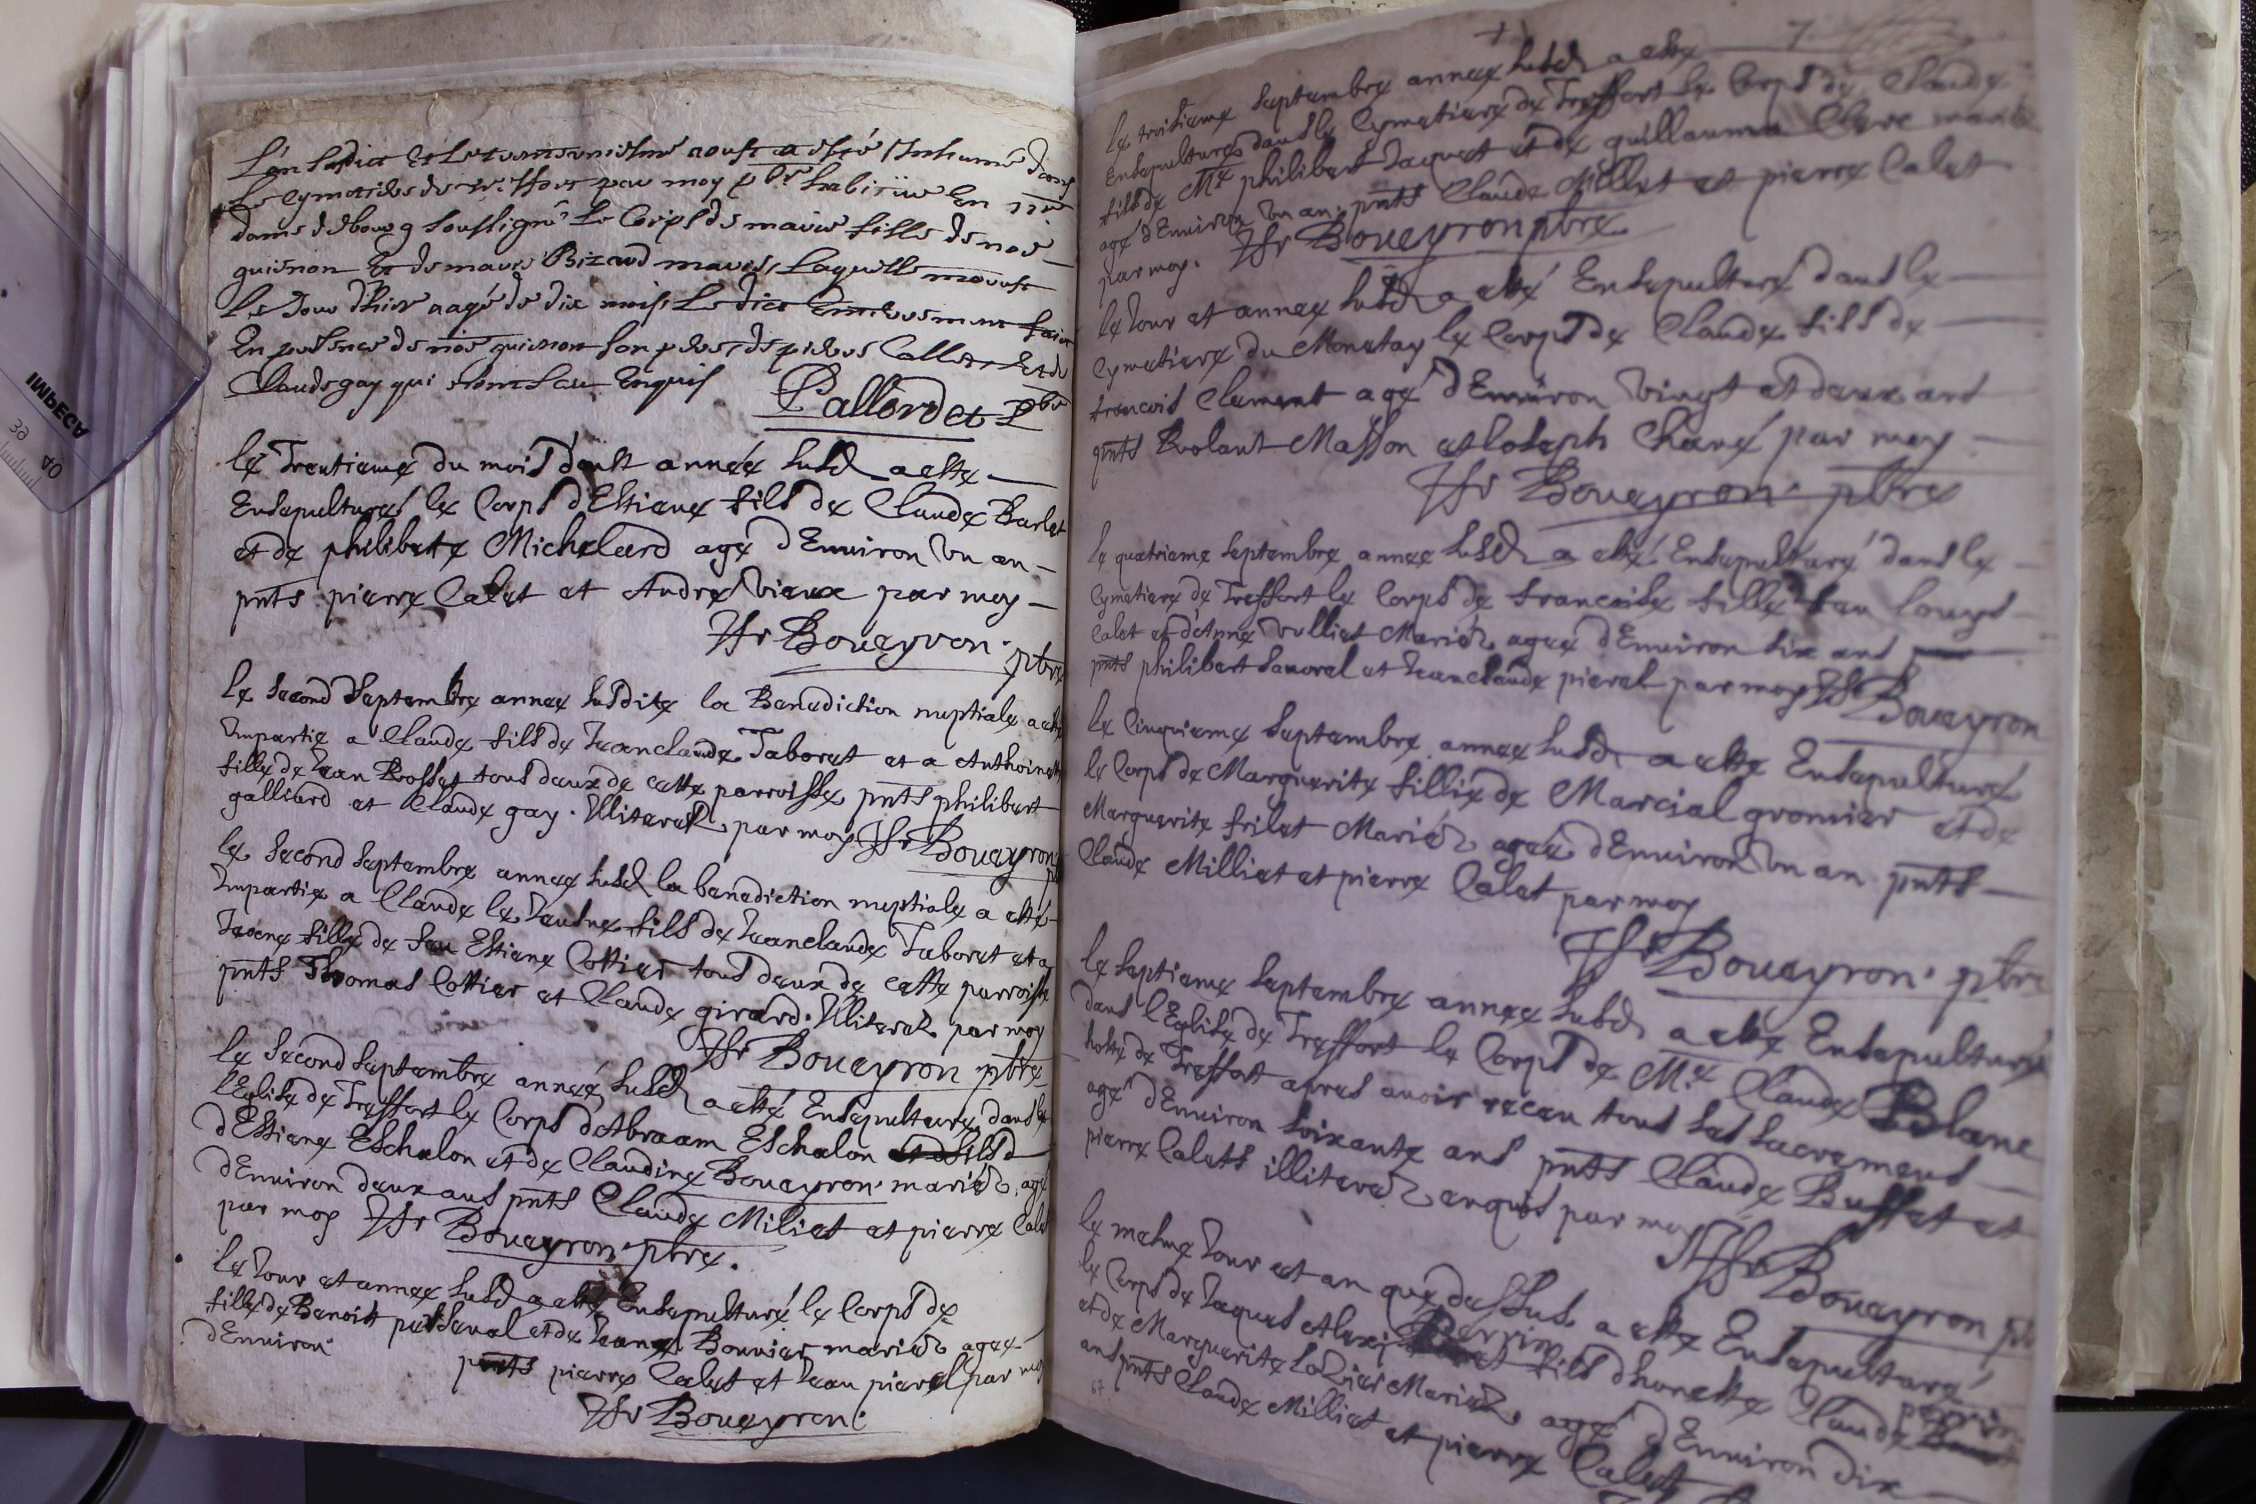 L'an susdict Et Le vint neufvieme aoust a esté Inhumé dans
Le Cymetiere de Treffort par moy pbre habitué En nre
dame de bourg soussigné Le Corps de marie fille de noe
guionon Et de marie Bizard mariés Laquelle mourust
Le Jour d'hier aagé de dix mois Le dict Enterement faict
En presence de noé guionon son pere, de pierre Callet et de
Claude gay qui n'ont sceu Enquis
Pallordet Pbre
le Trentieme du mois d'oust année susd a este
Ensepulturé le Corps d'Estiene fils de Claude Barlet
et de philiberte Michelard agé d'Environ un an
pnts pierre Calet et Andre Vieux par moy
Boueyron pbre
le second septembre annee susdite la Benediction nuptiale a esté
Impartie a Claude fils de Jeanclaude Taboret et a Anthoinette
fille de Jean Rosset tous deux de cette parroisse pnts philibert
galliard et Claude gay. Illiteres par moy Boueyron
le second septembre annee susd la benediction nuptiale a esté
Impartie a Claude le Jeusne fils de Jeanclaude Taboret et a
Jeane fille de feu Estiene Cottier tous deux de cette parroisse
pnts Thomas Cottier et Claude girard. Illiteres par moy
Boueyron pbre
le second septembre année susd a esté Ensepulture dans
l'Eglise de Treffort le Corps d'Abraam Eschalon fils
d'Estiene Eschalon et de Claudine Boueyron mariés agé
d'Environ deux ans pnts Claude Miliet et pierre Calet
par moy Boueyron pbre.
le Jour et annee susd a esté Ensepulturé le Corps de
fille de Benoist perseval et de Jeane Bonnier mariés agee
d'Environ
pnts pierre Calet et Jean pierel par moy
Boueyron
7
le troisieme septembre annee susd a este
Ensepulture dans le Cymetiere de Treffort le Corps de Claude
fils de Me philibert Jaquet et de guillauma Clere mariés
agé d'Environ un an. pnts Claude Milliet et pierre Calet
par moy. Boueyron pbre
le Jour et annee susd a esté Ensepulturé dans le
Cymetiere du Monetay le Corps de Claude fils de
francois Clement agé d'Environ vingt et deux ans
pnts Rolant Masson et Joseph Chané par moy
Boueyron. pbre
le quatrieme septembre annee susd a esté Ensepulturé dans le
Cymetiere de Treffort le Corps de francoise fille feu Louys
Calet et d'Anne Vulliet Mariés agee d'Environ six ans
pnts philibert Sanoral et Jeanclaude pierel par moy Boueyron
le Cinquieme septembre annee susd a este Ensepulturé
le Corps de Marguerite fillie de Marcial gronier et de
Marguerite frilet Mariés agee d'Environ un an pnts
Claude Milliet et pierre Calet par moy
Boueyron. pbre
le septieme septembre annee susd a este Ensepulturé
dans l'Eglise de Treffort le Corps de Me Claude Blanc
hoste de Treffort apres avoir receu tous ses sacremens
agé d'Environ soixante ans pnts Claude Buffet et
pierre Calets illiteres enquis par moy
Boueyron pbre
le mesme Jour et an que dessus a este Ensepulturé
le Corps de Jaques Alexi Perrin fils d'honeste Claude perrin
et de Marguerite Lozier Mariés, agé d'Environ dix
ans pnts Claude Milliet et pierre Calet